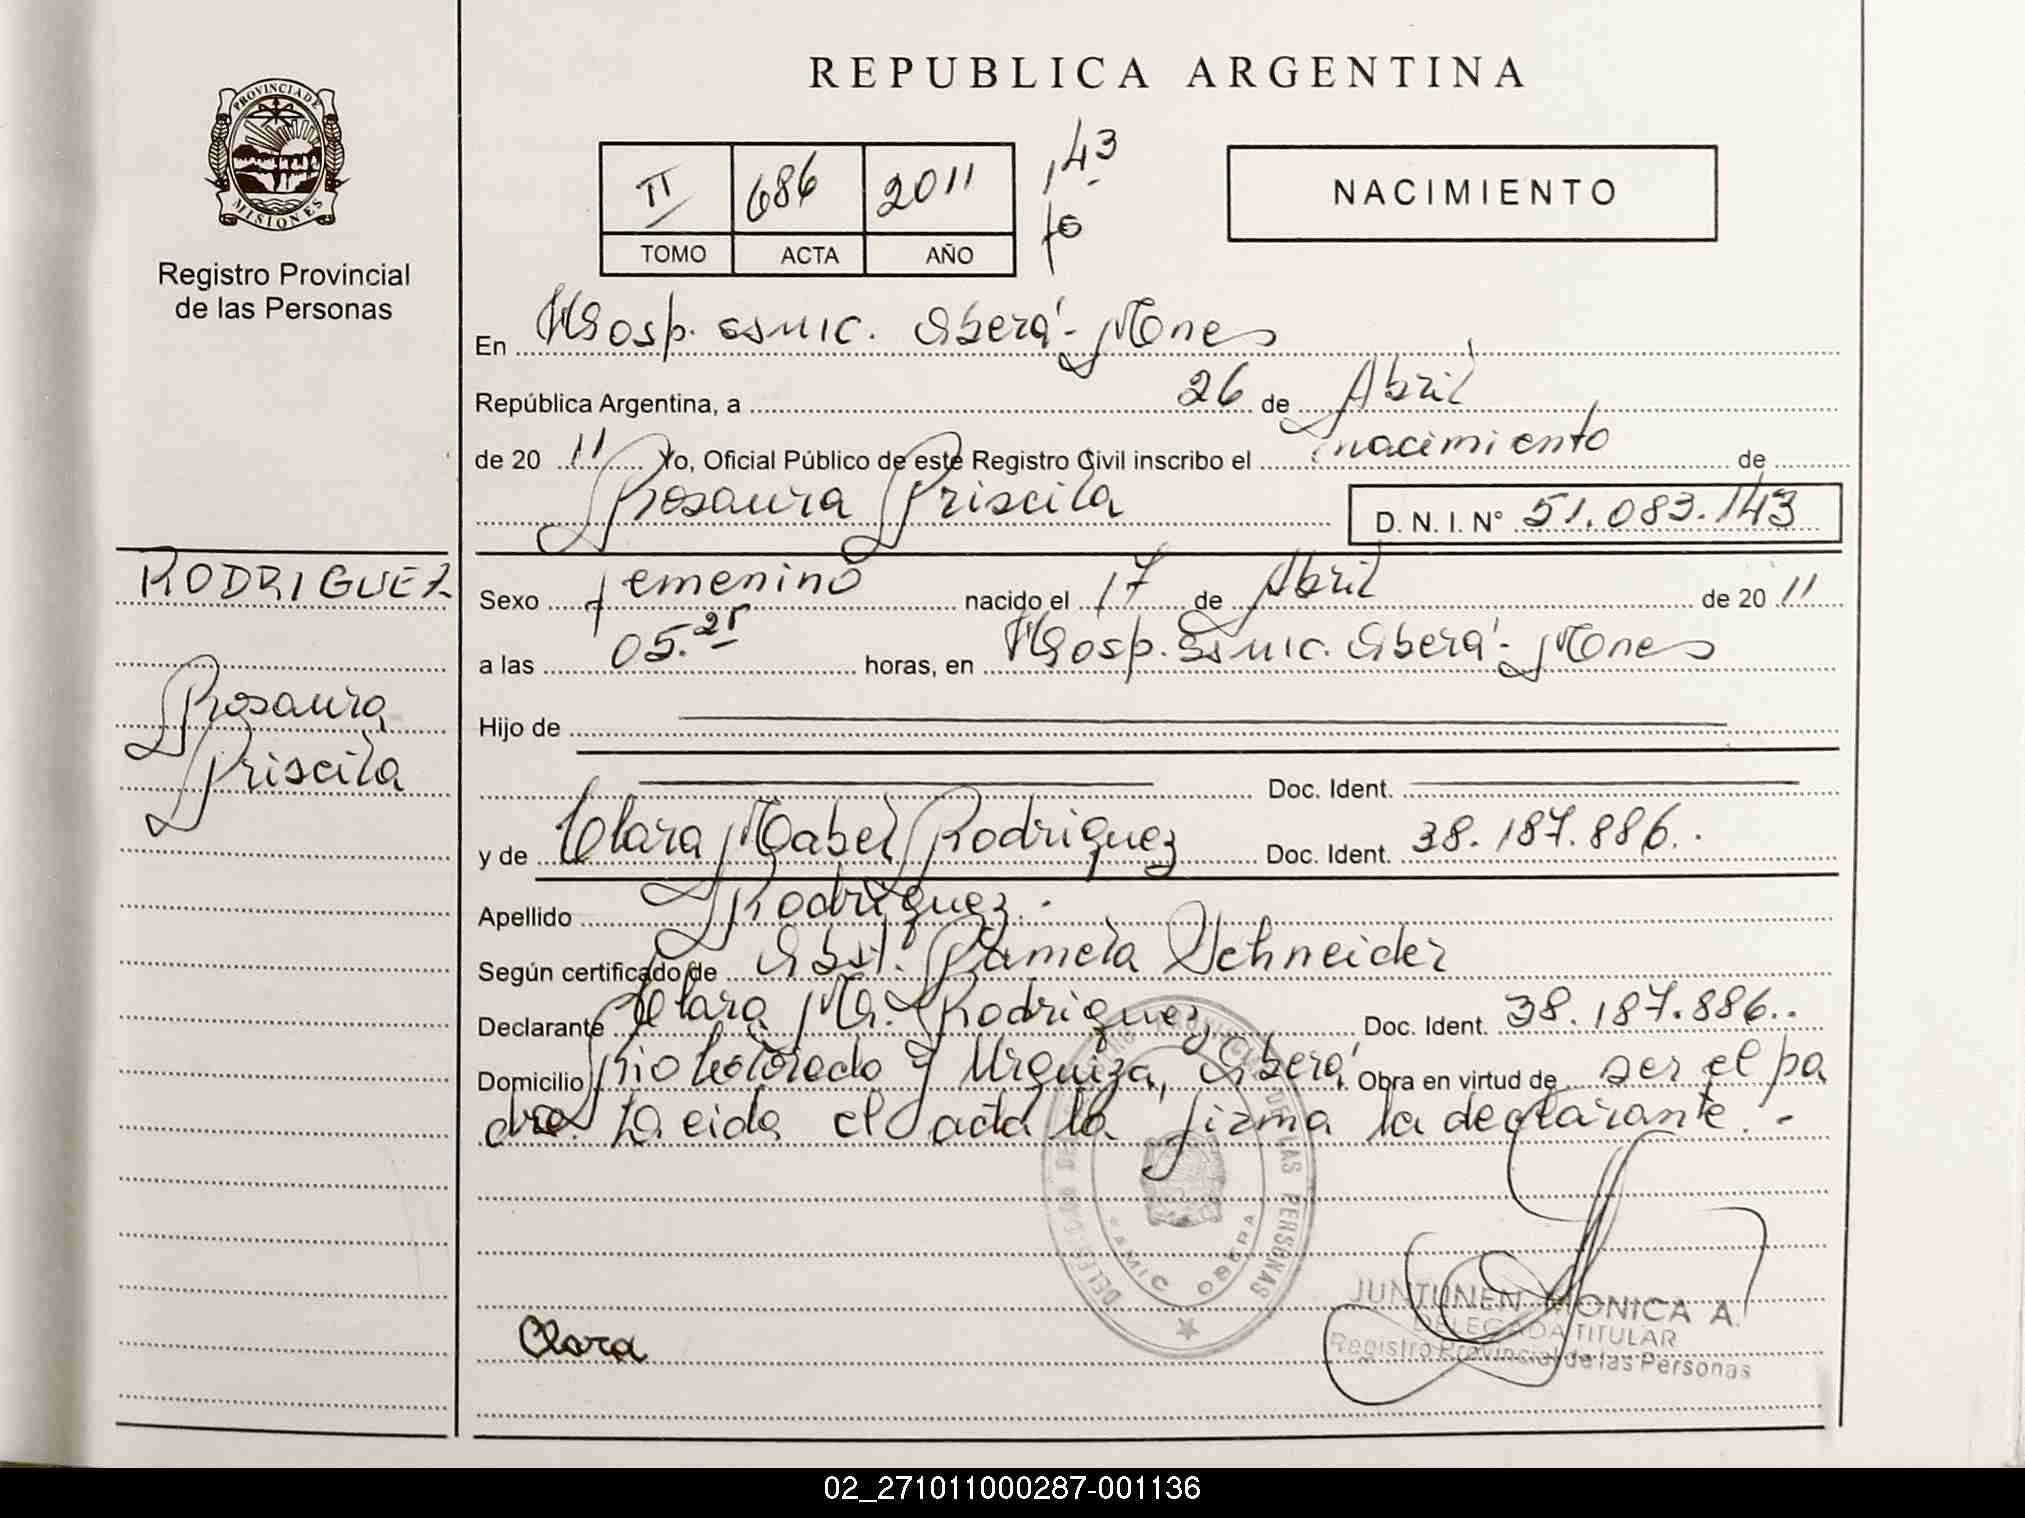 REPUBLICA ARGENTINA
PROVINCIA DE
MISIONES
Registro Provincial
de las Personas
II 686 2011
TOMO ACTA AÑO
143
fo
NACIMIENTO
En Hosp. Oberá - Mones
República Argentina, a 26 de Abril
de 20 11 Yo, Oficial Público de este Registro Civil inscribo el nacimiento de
Rosaura Priscila D. N. I. N° 51.083.143
RODRIGUEZ
Rosaura
Priscila
Sexo femenino nacido el 17 de Abril de 20 11
a las 05.25 horas, en Hosp. Oberá - Mones
Hijo de
Doc. Ident.
y de Clara Mabel Rodriguez Doc. Ident. 38.187.886.
Apellido Rodriguez.
Según certificado de Obst. Pamela Schneider
Declarante Clara M. Rodriguez Doc. Ident. 38.187.886..
Domicilio Rio Colorado y Urquiza, Oberá Obra en virtud de ser el pa
dre. Leida el acta la firma la declarante. -
DE LAS PERSONAS
SAMIC OBERA
Clara
JUNTUNEN MONICA A.
DELEGADA TITULAR
Registro Provincial de las Personas
02_271011000287-001136